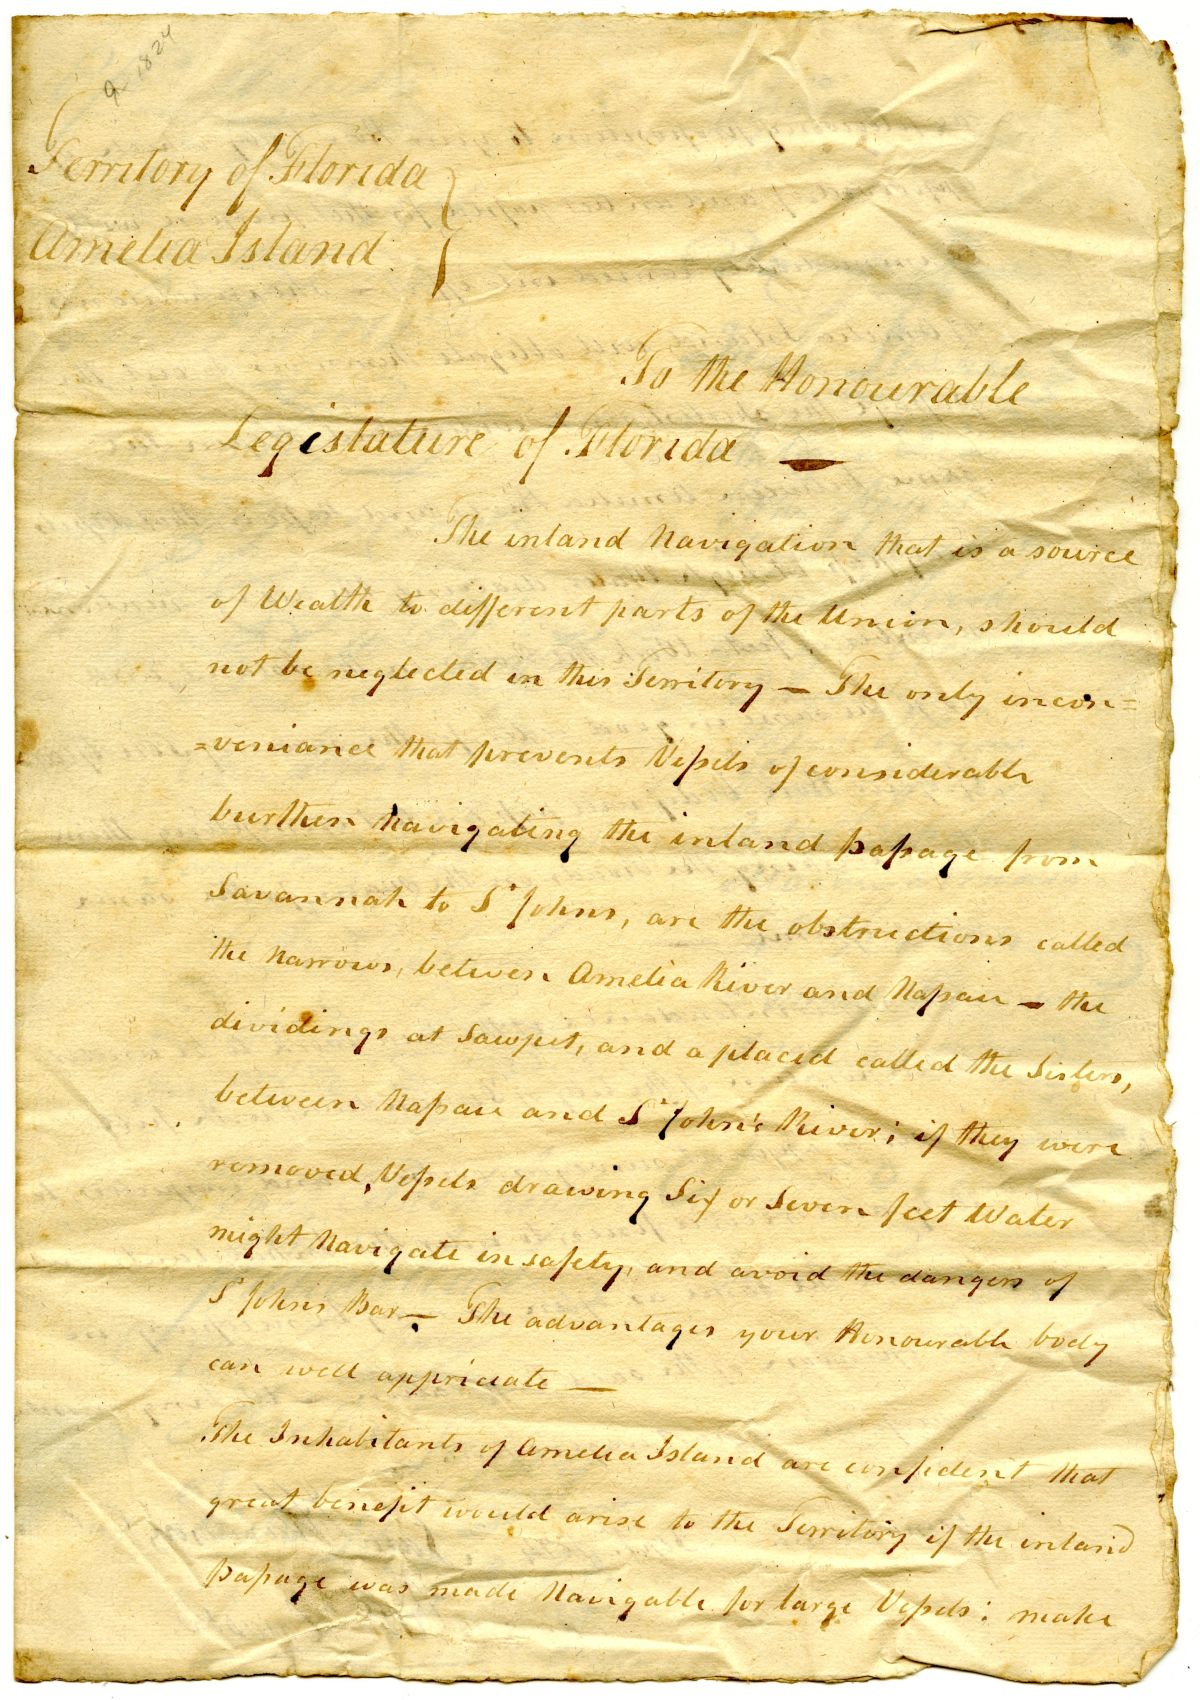 1824
Territory of Florida
Amelia Island
To the Honourable
Legislature of Florida —
The inland Navigation that is a source
of Wealth to different parts of the Union, should
not be neglected in this Territory — The only incon=
=veniance that prevents Vessels of considerable
burthen Navigating the inland passage from
Savannah to St Johns, are the obstructions called
the Narrows, betwen Amelia River and Nassau — the
dividings at Sawpit, and a placed called the Sisters,
between Nassau and St John's River; if they were
removed, Vessels drawing Six or Seven feet Water
might Navigate in safety, and avoid the dangers of
St Johns Bar — The advantages your Honourable body
can well appriciate —
The Inhabitants of Amelia Island are confident that
great benefit would arise to the Territory if the inland
passage was made Navigable for large Vessels: make